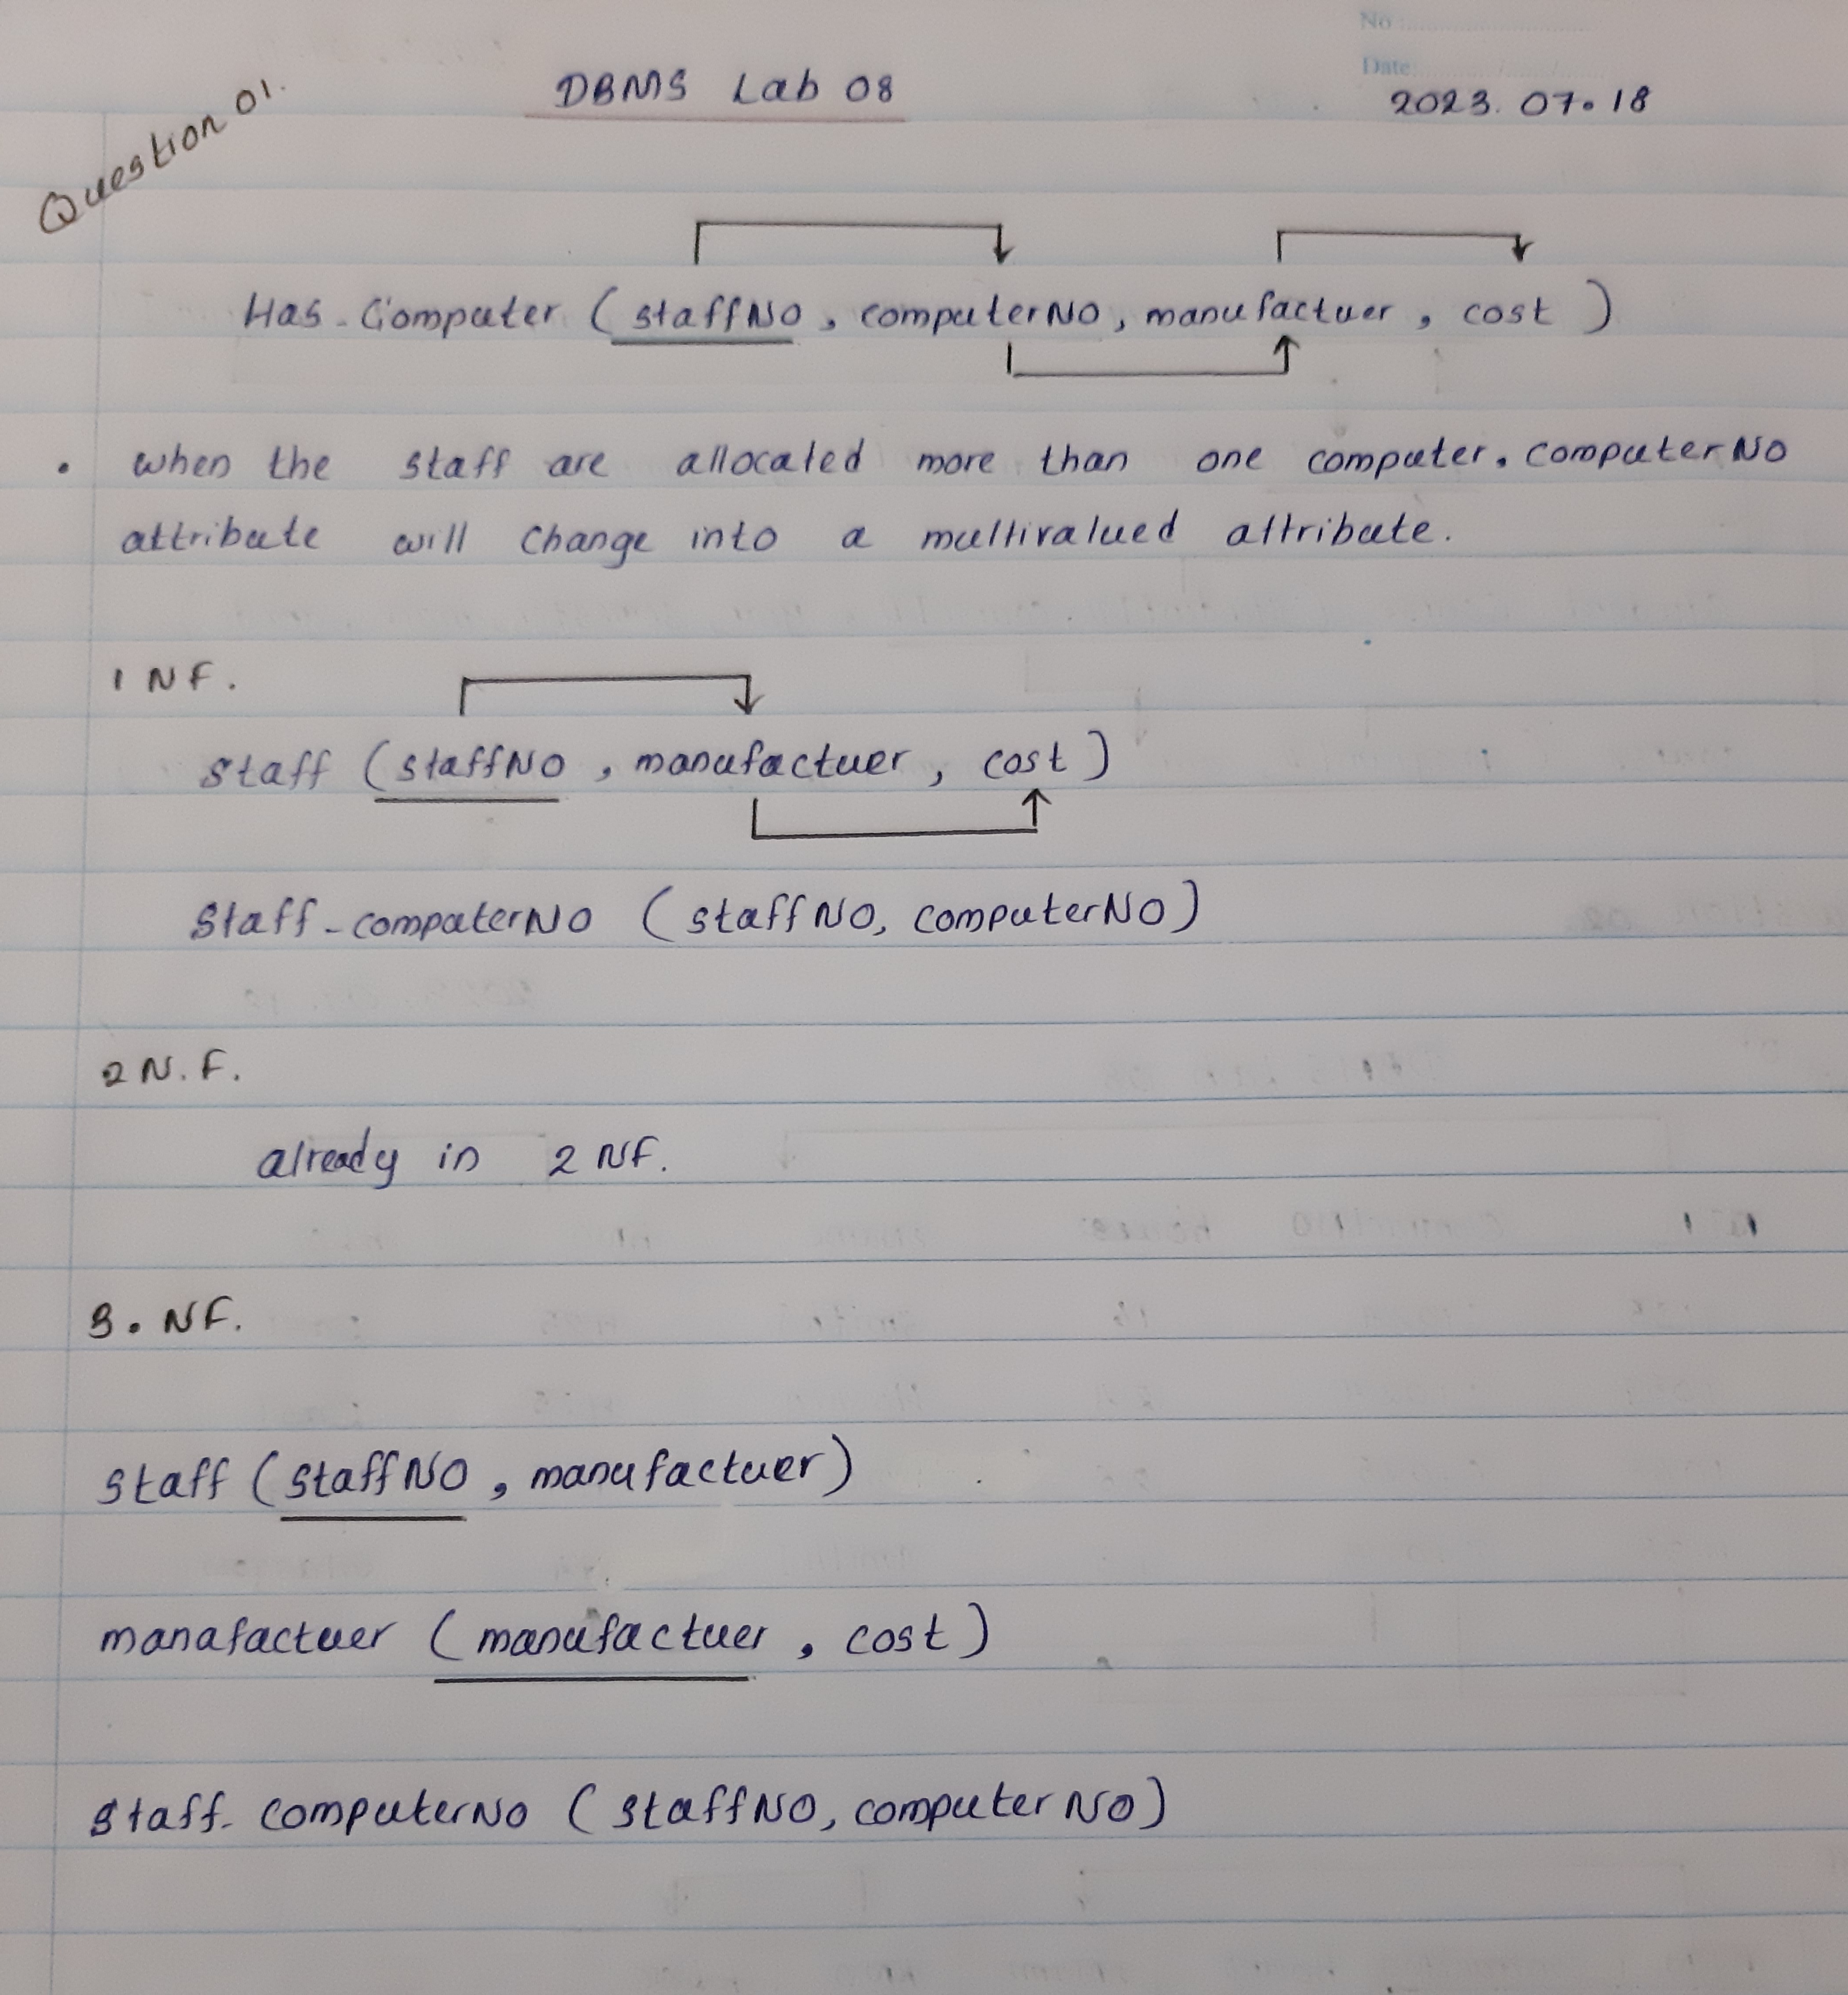 No
Date:
DBMS Lab 08
2023.07.18
Question 01.
Has-Computer ( staffNO, computerNO, manufactuer, cost )
• when the staff are allocated more than one computer. computerNO
attribute will change into a multivalued attribute.
1 NF.
Staff (staffNO, manufactuer, cost)
Staff-computerNO (staffNO, computerNO)
2 N.F.
already in 2 NF.
3. NF.
Staff (StaffNO, manufactuer)
manufactuer (manufactuer, cost)
Staff-computerNO (StaffNO, computerNO)